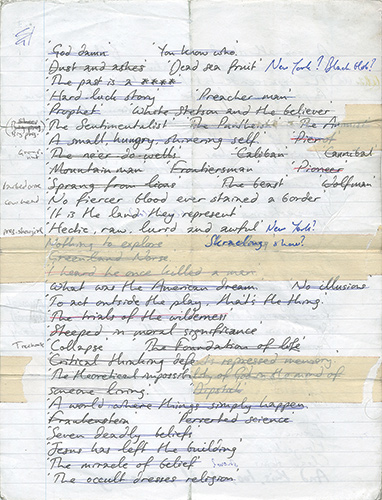 'God damn' 'You know who'
'Dust and ashes' 'Dead sea fruit' New York?
'The past is a ****'
'Hard luck story' 'Preacher man'
'Prophet' 'White Stetson and the believer'
'The Sentimentalist' 'The Pantheist' 'The
'A small, hungry, shivering self' Pierrot
'The ne'er do wells' Caliban Cannibal
Mountain man Frontiersman Pioneer
Sprang from lions The beast Wolfman
No fiercer blood ever stained a border
'It is the land they represent'
Hectic, raw, lurid and awful New York?
Nothing to explore Skraeling show?
Greenland Norse
I heard he once killed a man
What was the American dream. No illusions
To act outside the play, that's the thing.
The trials of the wilderness
Steeped in moral significance
'Collapse' 'The Foundation of life'
'Critical thinking repressed memory
'The theoretical impossibility of God in the mind of
someone living.' 'Dipstick'
'A world where things simply happen
Frankenstein Perverted science'
Seven deadly beliefs
'Jesus has left the building'
'The miracle of belief'
'The occult dresses religion